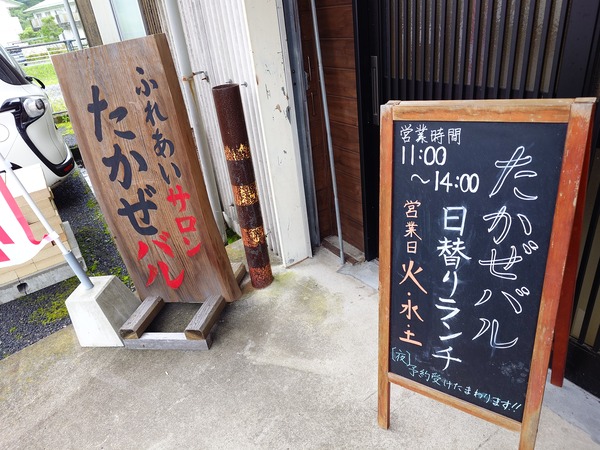 ふれあいサロン
たかぜバル
営業時間
11:00
～14:00
たかぜバル
日替りランチ
営業日
火・水・土
[夜]予約受けたまわります!!